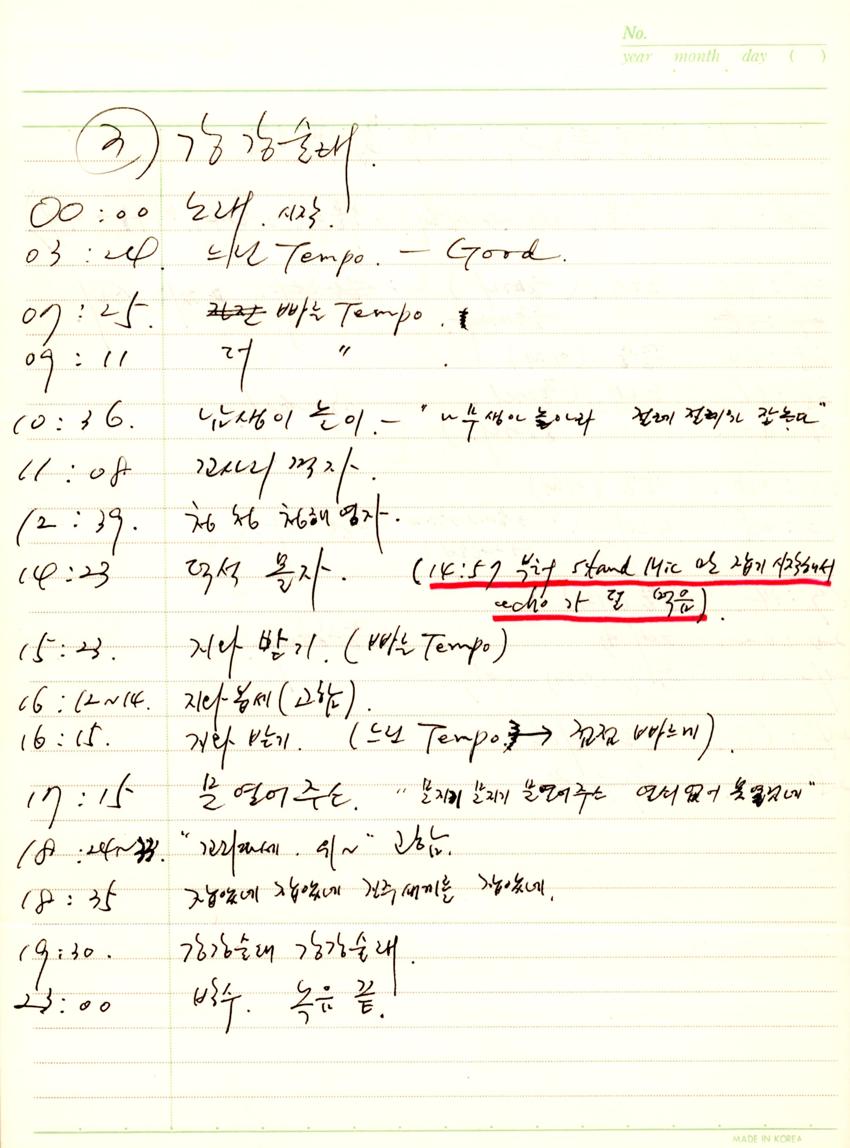 No.
year month day ( )
③ 강강술래.
00:00 노래. 시작.
03:24. 느린 Tempo. — Good.
07:25. 빠른 Tempo.
09:11 더 〃 .
10:36. 남생이 놀이. — " 남생아 놀아라 절레 절레가 잘논다"
11:08 고사리 꺽자.
12:39. 청청 청애 엮자.
14:23 덕석 몰자. (14:57 부터 Stand Mic 만 잡기 시작해서
echo가 덜 먹음).
15:23. 지와 밟기. (빠른 Tempo)
16:12~14. 지와 봅세 (고함).
16:15. 지와 밟기. (느린 Tempo → 점점 빠르게).
17:15 문 열어 주소. "문지기 문지기 문열어주소 열쇠 없어 못 열겠네"
18:24~33. " 위~" 고함.
18:35 잡았네 잡았네 진주새끼를 잡았네.
19:30. 강강술래 강강술래.
23:00 박수. 녹음 끝.
MADE IN KOREA